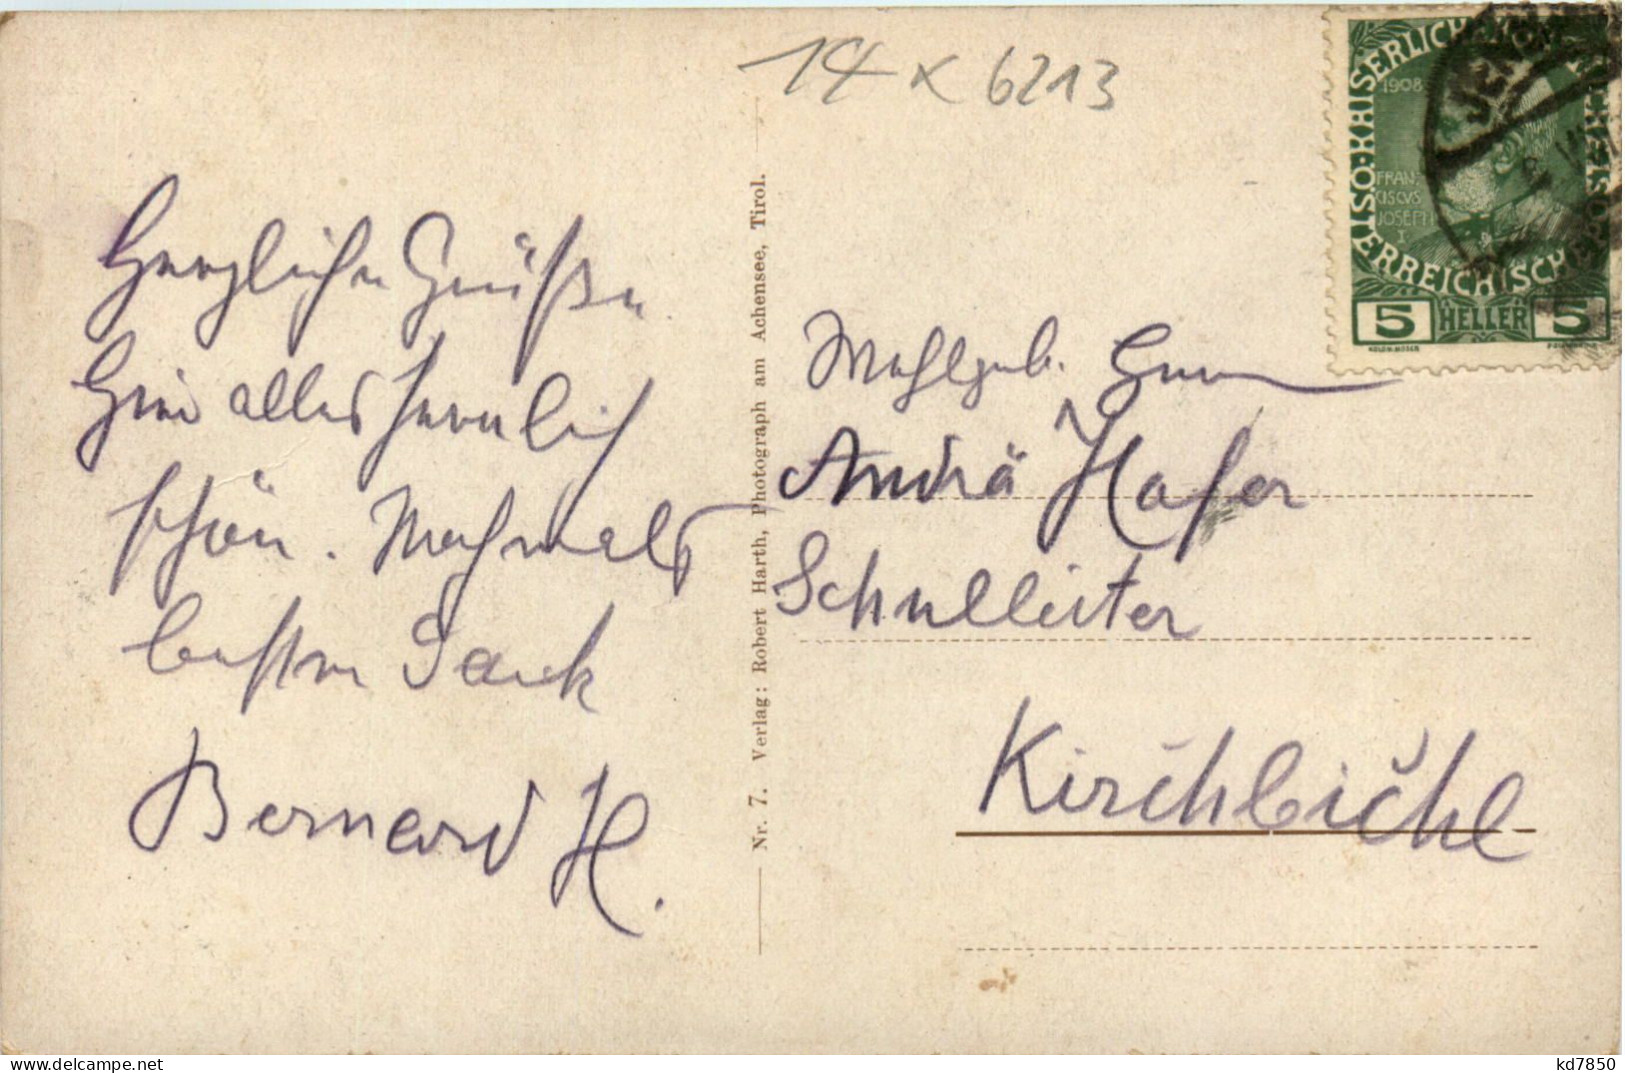 14 x 6213
Herzliche Grüße
Hier alles herrlich
schön. Nochmals
besten Dank
Bernard H.
Nr. 7. Verlag: Robert Harth, Photograph am Achensee, Tirol.
KAISERLICHE KÖNIGLICHE ÖSTERREICHISCHE POST
1908
FRAN-
CISCVS
JOSEPH
I
5 HELLER 5
Wohlgeb. Herrn
Andrä Hofer
Schulleiter
Kirchbichl
delcampe.net
kd7850